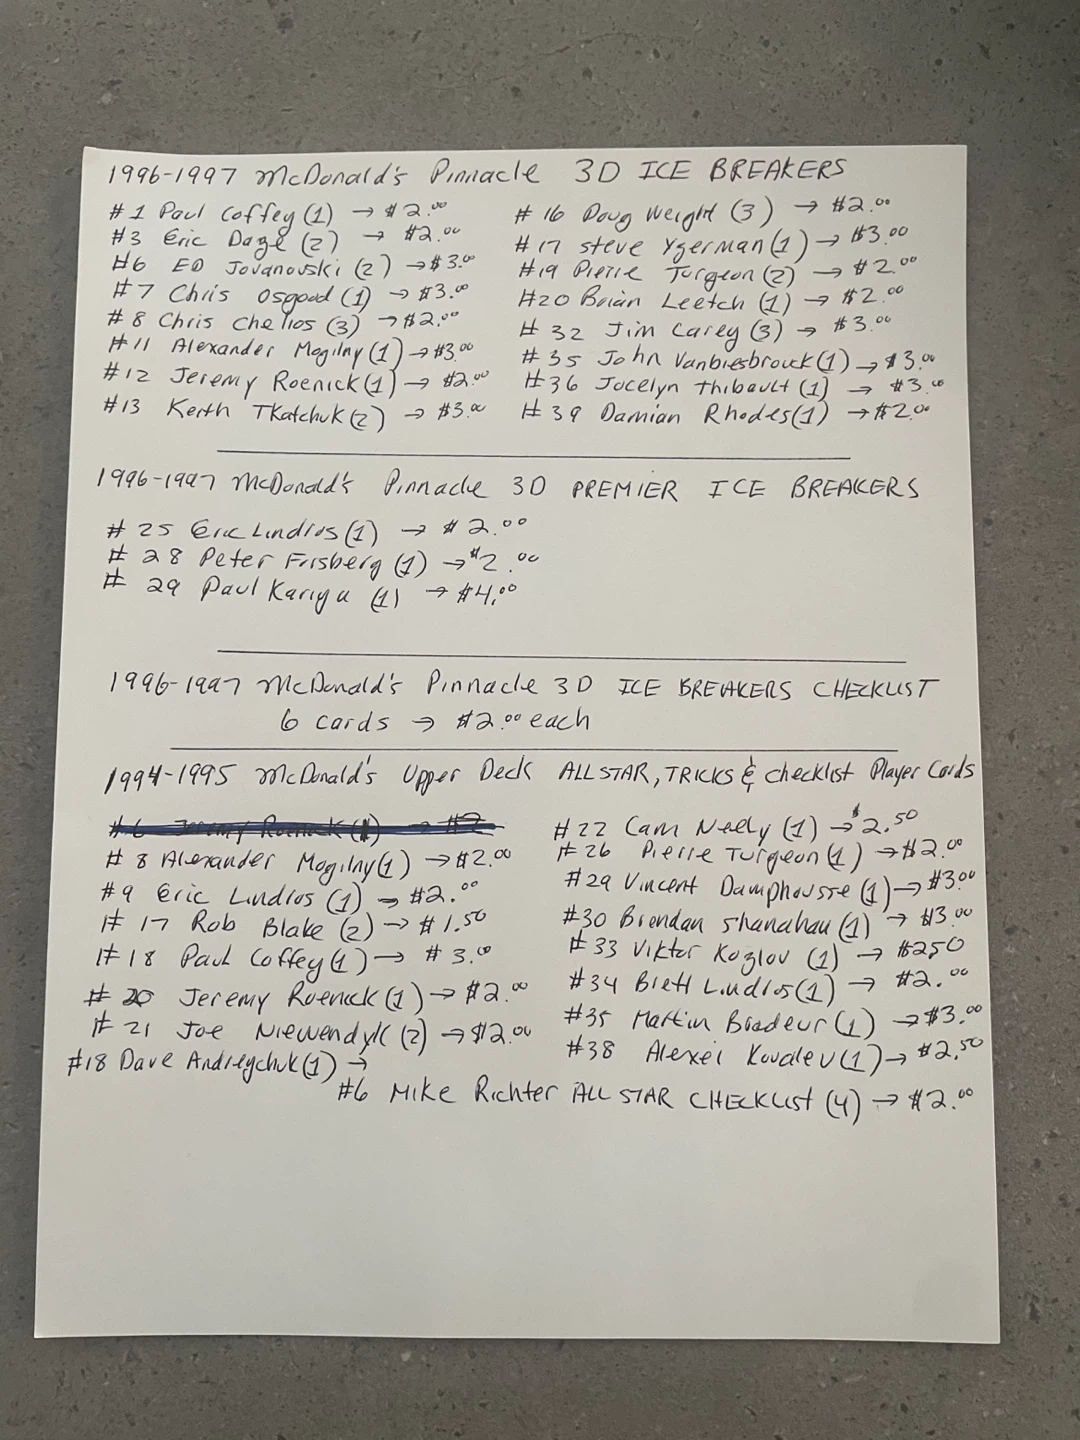 1996-1997 McDonald's Pinnacle 3D ICE BREAKERS
#1 Paul Coffey (1) → $2.00
#3 Eric Dazé (2) → $2.00
#6 ED Jovanovski (2) → $3.00
#7 Chris Osgood (1) → $3.00
#8 Chris Chelios (3) → $2.00
#11 Alexander Mogilny (1) → $3.00
#12 Jeremy Roenick (1) → $2.00
#13 Keith Tkatchuk (2) → $3.00
#16 Doug Weight (3) → $2.00
#17 Steve Ygerman (1) → $3.00
#19 Pierre Turgeon (2) → $2.00
#20 Brian Leetch (1) → $2.00
#32 Jim Carey (3) → $3.00
#35 John Vanbiesbrouck (1) → $3.00
#36 Jocelyn Thibault (1) → $3.00
#39 Damian Rhodes (1) → $2.00
1996-1997 McDonald's Pinnacle 3D PREMIER ICE BREAKERS
#25 Eric Lindros (1) → $2.00
#28 Peter Forsberg (1) → $2.00
#29 Paul Kariya (1) → $4.00
1996-1997 McDonald's Pinnacle 3D ICE BREAKERS CHECKLIST
6 cards → $2.00 each
1994-1995 McDonald's Upper Deck ALL STAR, TRICKS & Checklist Player Cards
#6 Jeremy Roenick (1) → $2
#8 Alexander Mogilny (1) → $2.00
#9 Eric Lindros (1) → $2.00
#17 Rob Blake (2) → $1.50
#18 Paul Coffey (1) → $3.00
#20 Jeremy Roenick (1) → $2.00
#21 Joe Niewendylc (2) → $2.00
#18 Dave Andreychuk (1) →
#22 Cam Neely (1) → $2.50
#26 Pierre Turgeon (1) → $2.00
#29 Vincent Damphousse (1) → $3.00
#30 Brendan Shanahan (1) → $3.00
#33 Viktor Kozlov (1) → $250
#34 Brett Lindros (1) → $2.00
#35 Martin Brodeur (1) → $3.00
#38 Alexei Kovalev (1) → $2.50
#6 Mike Richter ALL STAR CHECKLIST (4) → $2.00